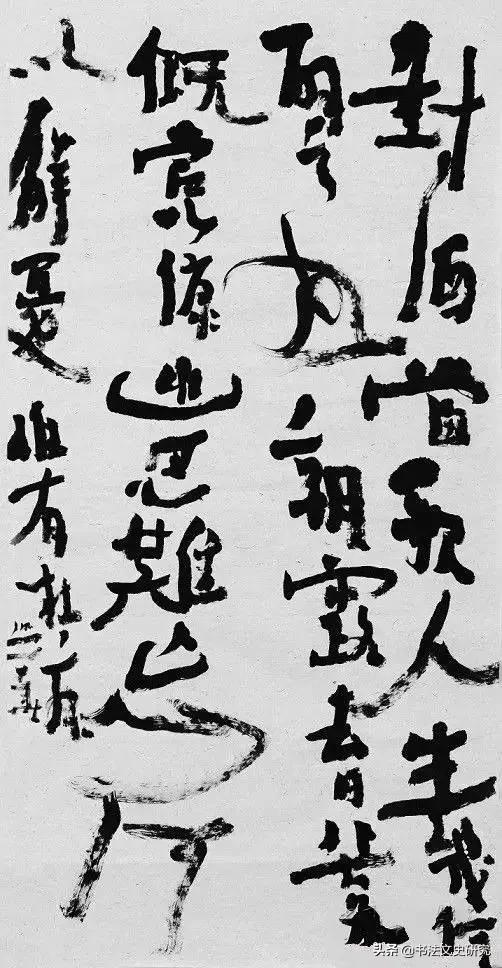 對酒當歌人生幾何
譬如朝露去日苦多
慨當慷幽思難忘何
以解憂唯有杜康
头条 @书法文史研究